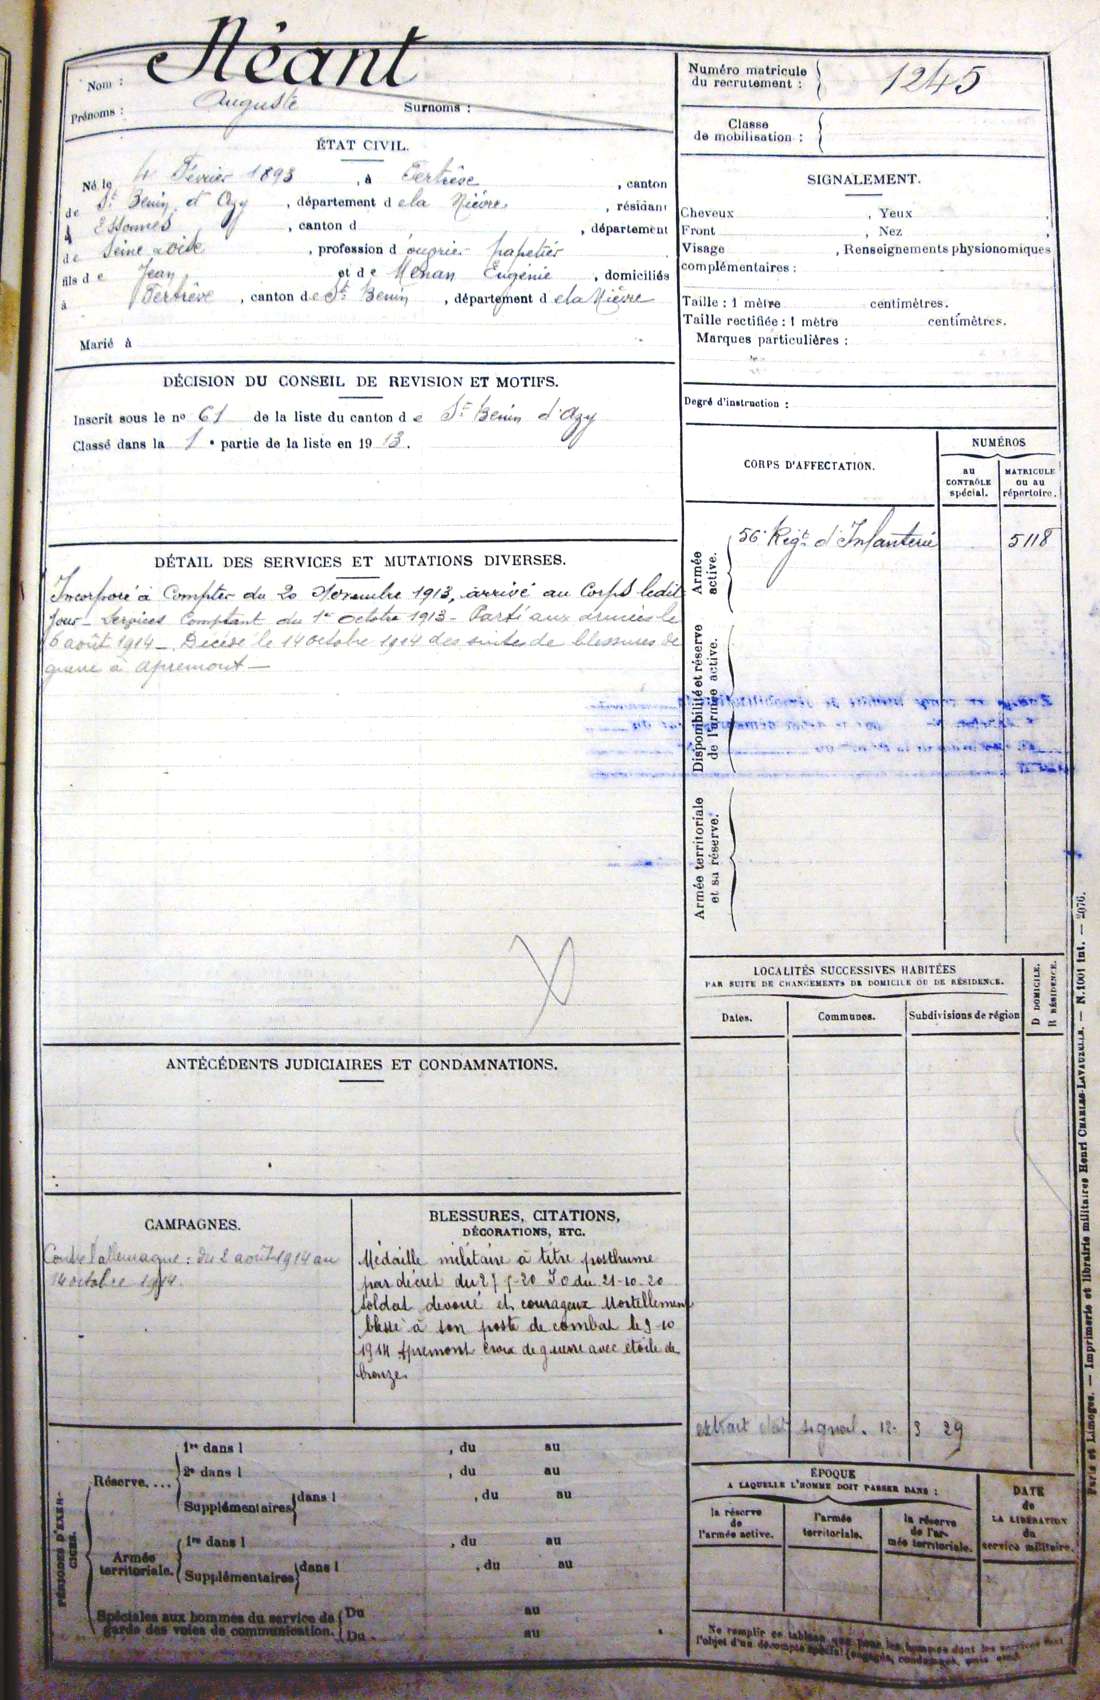 Nom : Néant
Prénoms : Auguste Surnoms :
ÉTAT CIVIL.
Né le 4 Février 1893, à Tertrêve, canton
de St Benin d'Azy, département de la Nièvre, résidant
à Essonnes, canton d , département
de Seine & Oise, profession d'ouvrier papetier
fils de Jean et de Menan Eugénie, domiciliés
à Tertrêve, canton de St Benin, département de la Nièvre
Marié à
DÉCISION DU CONSEIL DE REVISION ET MOTIFS.
Inscrit sous le no 61 de la liste du canton de St Benin d'Azy
Classé dans la 1e partie de la liste en 1913.
DÉTAIL DES SERVICES ET MUTATIONS DIVERSES.
Incorporé à Compter du 20 Novembre 1913, arrivé au Corps ledit
jour - Services Comptant du 1er octobre 1913 - Parti aux armées le
6 août 1914 - Décédé le 14 octobre 1914 des suites de blessures de
guerre à Apremont -
ANTÉCÉDENTS JUDICIAIRES ET CONDAMNATIONS.
CAMPAGNES.
Contre l'allemagne : du 2 août 1914 au
14 octobre 1914.
BLESSURES, CITATIONS,
DÉCORATIONS, ETC.
Médaille militaire à titre posthume
par décret du 27-5-20 JO du 21-10-20
Soldat dévoué et courageux Mortellement
blessé à son poste de combat le 9-10
1914 Apremont Croix de guerre avec étoile de
bronze.
PÉRIODES D'EXERCICES.
Réserve....
1re dans l , du au
2e dans l , du au
Supplémentaires dans l , du au
Armée
territoriale.
1re dans l , du au
Supplémentaires dans l , du au
Spéciales aux hommes du service de
garde des voies de communication.
Du au
Du au
Numéro matricule
du recrutement : 1245
Classe
de mobilisation :
SIGNALEMENT.
Cheveux , Yeux ,
Front , Nez ,
Visage , Renseignements physionomiques
complémentaires :
Taille : 1 mètre centimètres.
Taille rectifiée : 1 mètre centimètres.
Marques particulières :
Degré d'instruction :
CORPS D'AFFECTATION.
NUMÉROS
au
CONTRÔLE
spécial.
MATRICULE
ou au
répertoire.
Armée
active.
56e Régt d'Infanterie 5118
Disponibilité et réserve
de l'armée active.
Armée territoriale
et sa réserve.
LOCALITÉS SUCCESSIVES HABITÉES
PAR SUITE DE CHANGEMENTS DE DOMICILE OU DE RÉSIDENCE.
Dates. Communes. Subdivisions de région
D DOMICILE.
R RÉSIDENCE.
extrait signal. 12. 3 29
ÉPOQUE
A LAQUELLE L'HOMME DOIT PASSER DANS :
la réserve
de
l'armée active.
l'armée
territoriale.
la réserve
de l'ar-
mée territoriale.
DATE
de
LA LIBÉRATION
du
service militaire.
Ne remplir ce tableau que pour les hommes dont les services font
l'objet d'un décompte spécial (engagés, condamnés,
Paris et Limoges. — Imprimerie et librairie militaires Henri CHARLES-LAVAUZELLE. — N. 1001 int. — 2076.